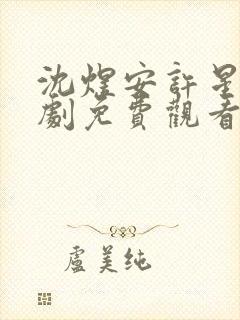 沈煜安許星
劇免費觀看
盧美纯